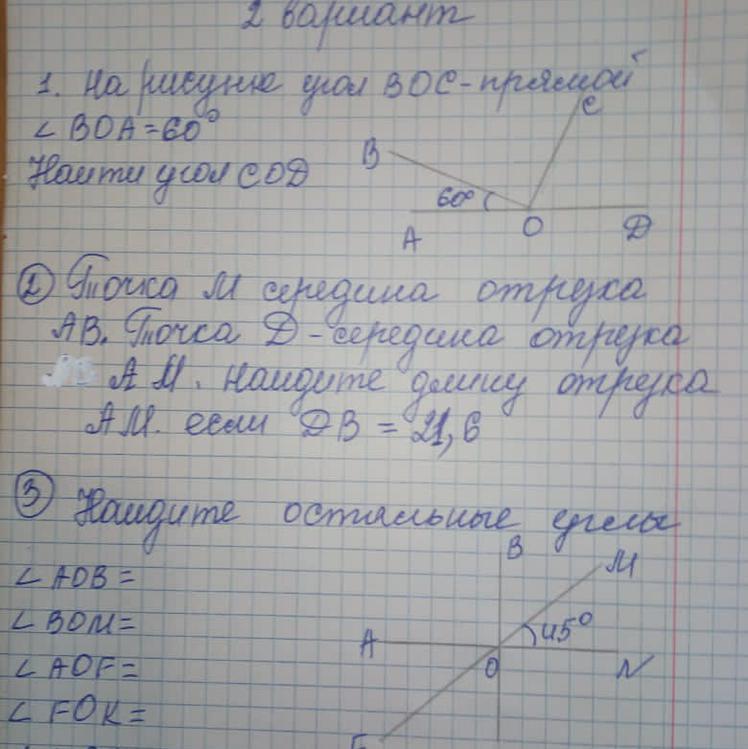 2 вариант
1. На рисунке угол ВОС - прямой
∠ BOA = 60°
Найти угол COD
B
C
60°
A
O
D
② Точка М середина отрезка
АВ. Точка D - середина отрезка
АМ. Найдите длину отрезка
АМ. если DB = 21,6
③ Найдите остальные углы
∠ AOB =
∠ BOM =
∠ AOF =
∠ FOK =
B
M
45°
A
O
N
F